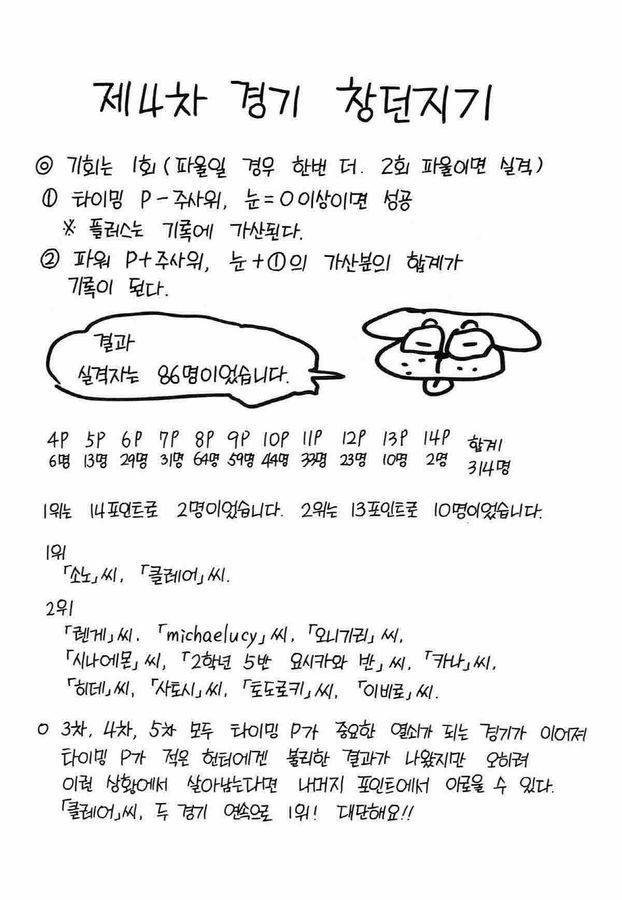 제4차 경기 창던지기
◎ 기회는 1회 (파울일 경우 한번 더. 2회 파울이면 실격)
① 타이밍 P-주사위, 눈=0이상이면 성공
※ 플러스는 기록에 가산된다.
② 파워 P+주사위, 눈+①의 가산분의 합계가
기록이 된다.
결과
실격자는 86명이었습니다.
4P 5P 6P 7P 8P 9P 10P 11P 12P 13P 14P 합계
6명 13명 29명 31명 64명 59명 44명 33명 23명 10명 2명 314명
1위는 14포인트로 2명이었습니다. 2위는 13포인트로 10명이었습니다.
1위
「소노」씨, 「클레어」씨.
2위
「렌게」씨. 「michaelucy」씨, 「오니기리」씨,
「시나에몬」씨, 「2학년 5반 요시카와 반」씨, 「카나」씨,
「히데」씨, 「사토시」씨, 「토도로키」씨, 「이비로」씨.
○ 3차, 4차, 5차 모두 타이밍 P가 중요한 열쇠가 되는 경기가 이어져
타이밍 P가 적은 헌터에겐 불리한 결과가 나왔지만 오히려
이런 상황에서 살아남는다면 나머지 포인트에서 이로울 수 있다.
「클레어」씨, 두 경기 연속으로 1위! 대단해요!!